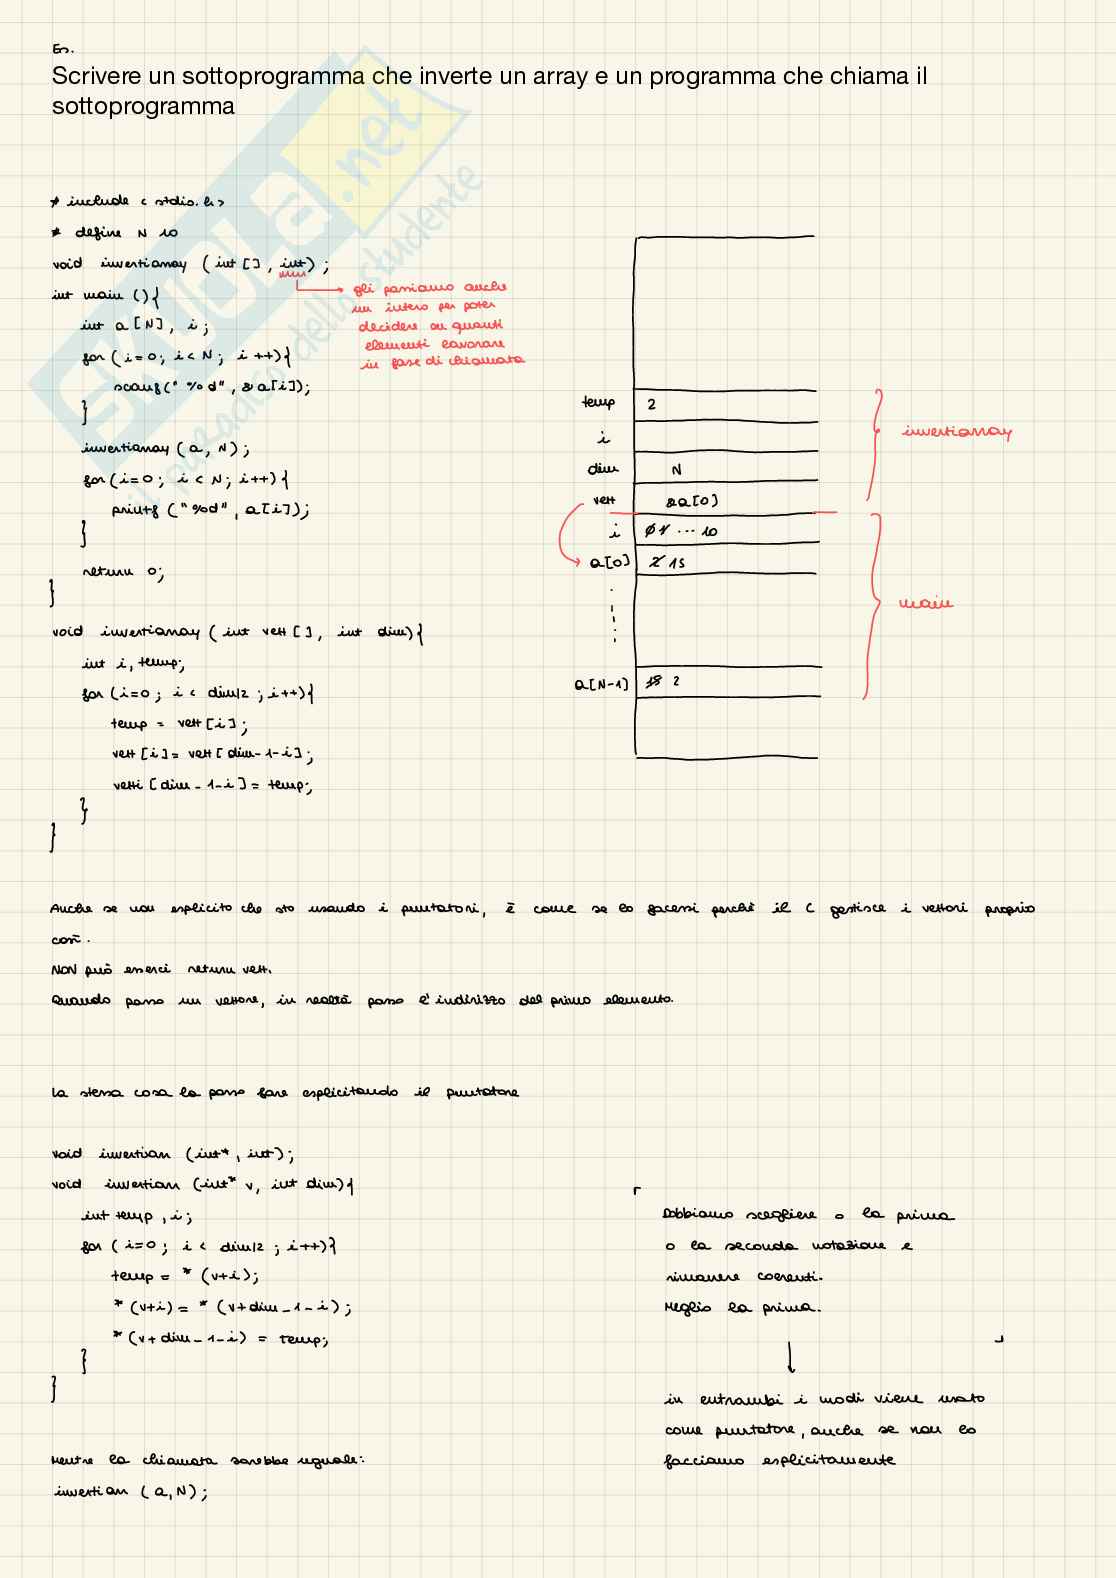 Es.
Scrivere un sottoprogramma che inverte un array e un programma che chiama il
sottoprogramma
# include < stdio.h >
# define N 10
void invertiarray (int [], int) ;
gli passiamo anche
un intero per poter
decidere su quanti
elementi lavorare
in fase di chiamata
int main () {
int a [N], i ;
for (i=0; i<N; i++) {
scanf(" %d", &a[i]);
}
invertiarray (a, N) ;
for (i=0; i<N; i++) {
printf ("%d", a[i]);
}
return 0;
}
void invertiarray ( int vett [], int dim) {
int i, temp;
for (i=0 ; i < dim/2 ; i++) {
temp = vett [i] ;
vett [i] = vett [dim-1-i] ;
vetti [dim-1-i] = temp;
}
}
temp 2
i
dim N
vett &a[0]
i 0 1 ... 10
a[0] 2 15
a[N-1] 15 2
invertiarray
main
Anche se non esplicito che sto usando i puntatori, è come se lo facessi perchè il C gestisce i vettori proprio
così.
NON può esserci return vett.
Quando passo un vettore, in realtà passo l'indirizzo del primo elemento.
La stessa cosa la posso fare esplicitando il puntatore
void invertiarr (int*, int);
void invertiarr (int* v, int dim) {
int temp, i;
for (i=0; i < dim/2 ; i++) {
temp = * (v+i);
* (v+i) = * (v+dim-1-i) ;
* (v+dim-1-i) = temp;
}
}
Mentre la chiamata sarebbe uguale:
invertiarr (a, N) ;
Dobbiamo scegliere o la prima
o la seconda notazione e
rimanere coerenti.
Meglio la prima.
in entrambi i modi viene usato
come puntatore, anche se non lo
facciamo esplicitamente
SKUOLA.net
il paradiso dello studente